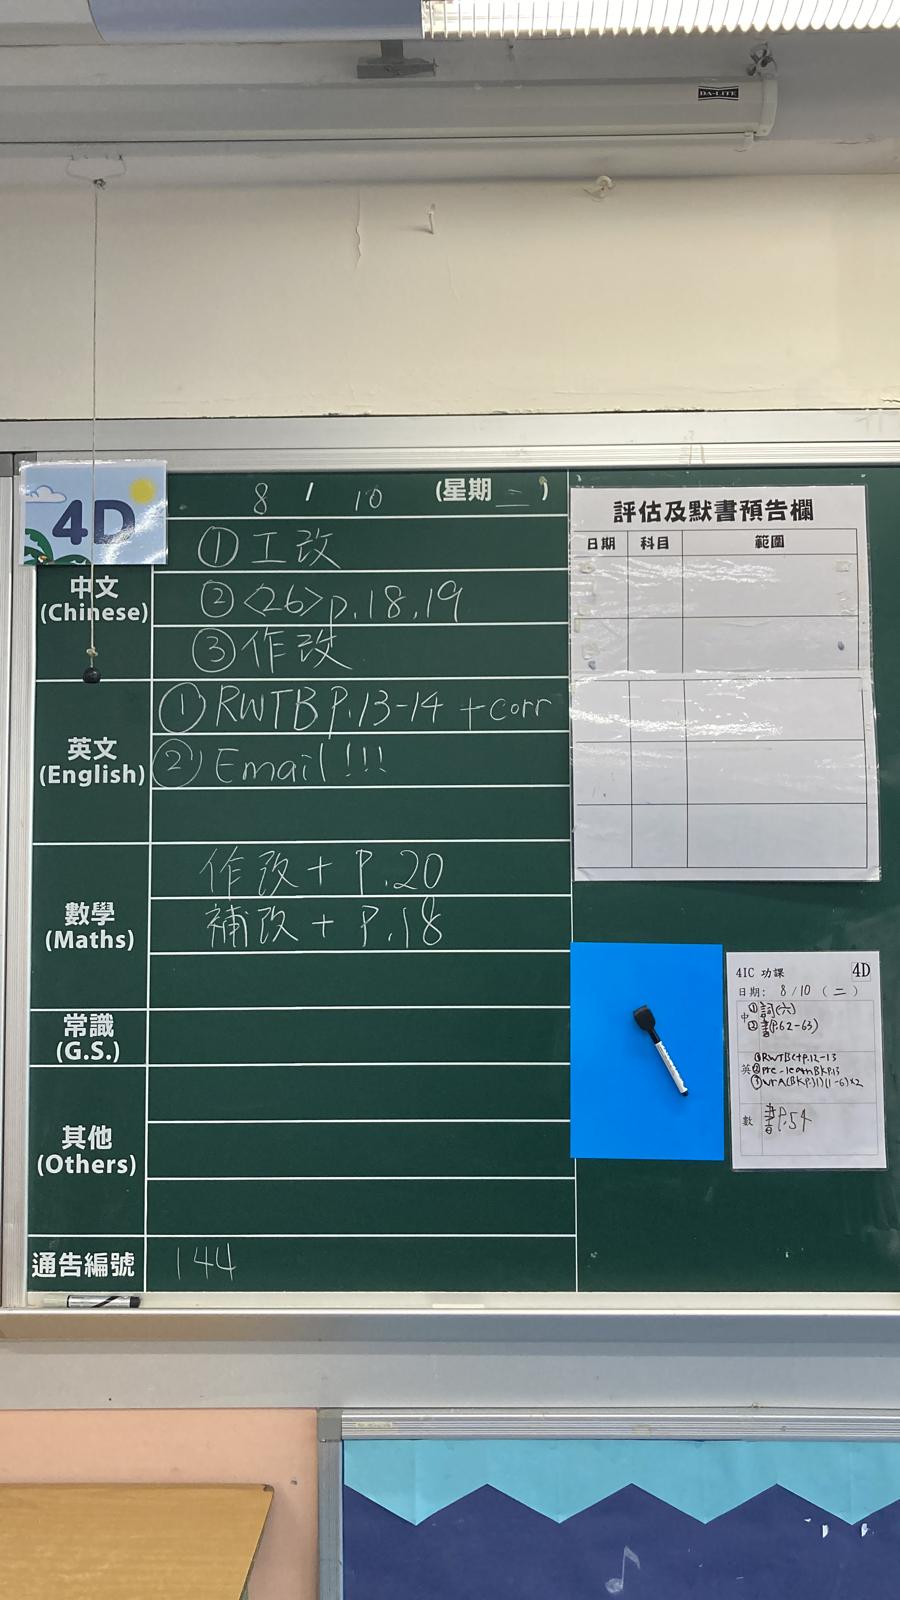 DA-LITE
4D
8 / 10 (星期二)
中文
(Chinese)
① 工改
② <26> p.18,19
③ 作改
英文
(English)
① RWTB P.13-14 +corr
② Email!!!
數學
(Maths)
作改 + P.20
補改 + P.18
常識
(G.S.)
其他
(Others)
通告編號
144
評估及默書預告欄
日期 科目 範圍
4IC 功課 4D
日期: 8/10 (二)
中 ① 詞(六)
② 書(P.62-63)
英 ① RWTB P.12-13
② pre-learn BK P.13
③
數 書P.54